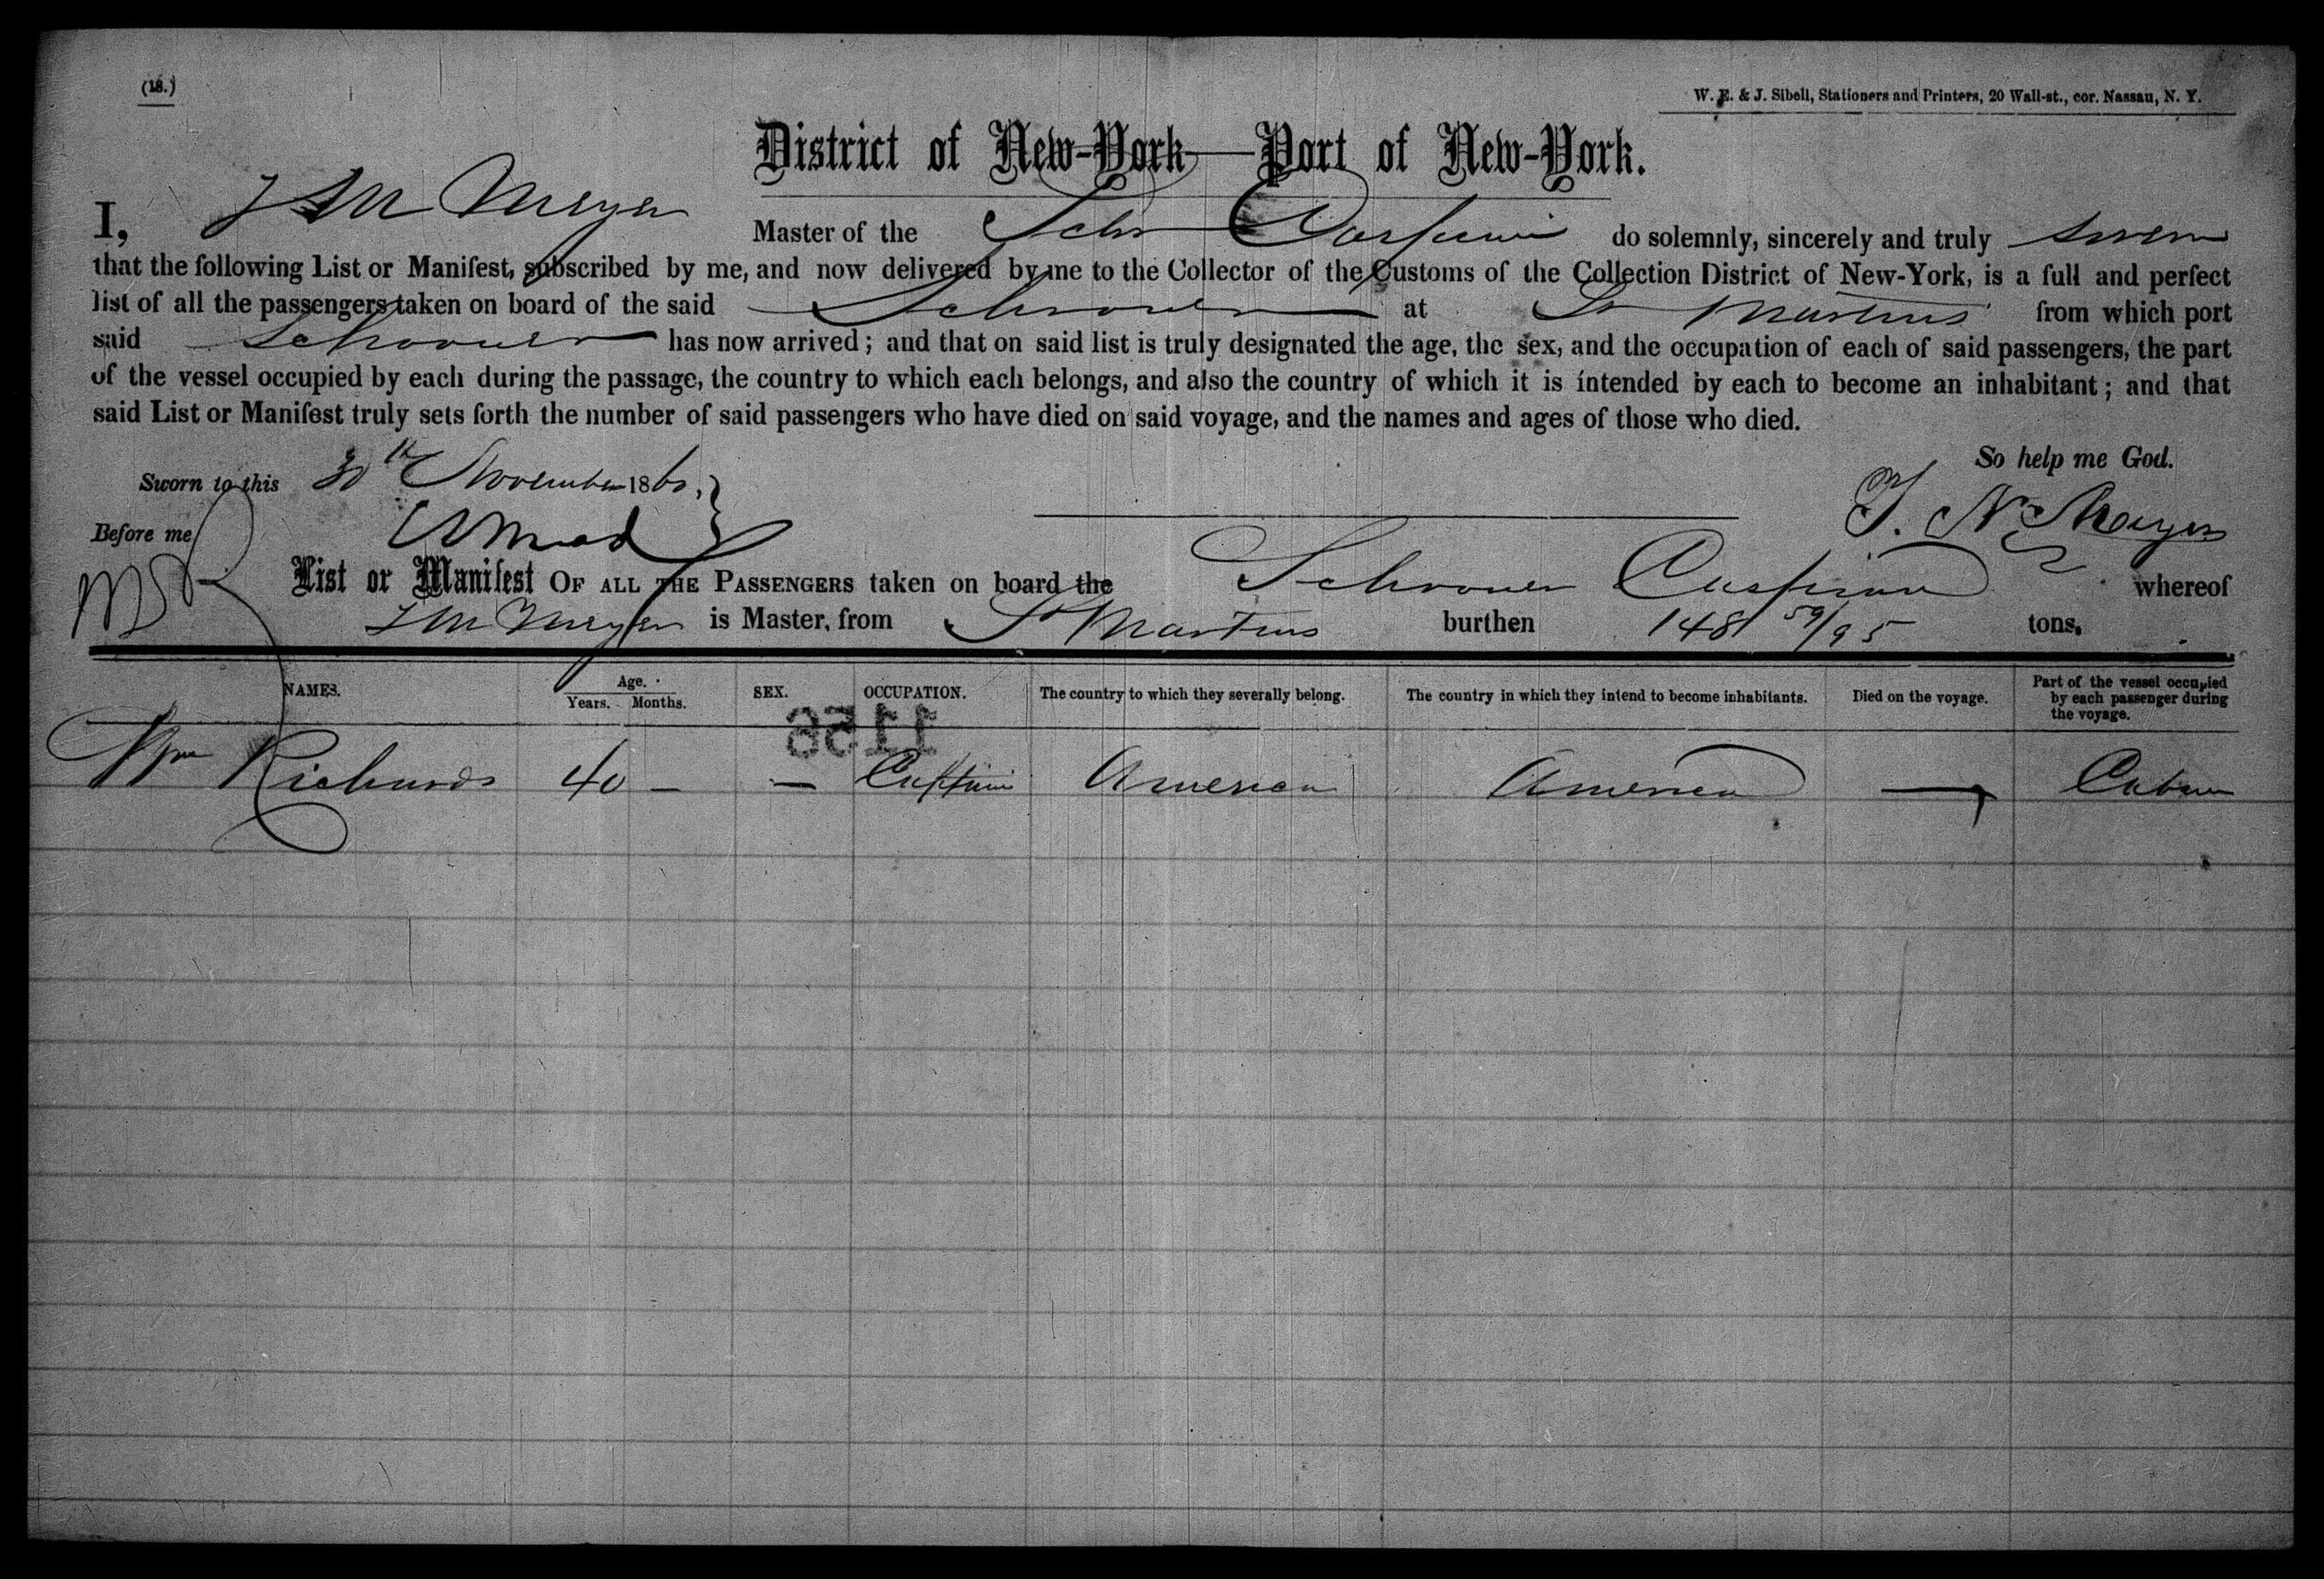 (18.)
W. E. & J. Sibell, Stationers and Printers, 20 Wall-st., cor. Nassau, N. Y.
District of New-York—Port of New-York.
I, Meyer Master of the Schr Caspian do solemnly, sincerely and truly swear
that the following List or Manifest, subscribed by me, and now delivered by me to the Collector of the Customs of the Collection District of New-York, is a full and perfect
list of all the passengers taken on board of the said Schooner at St Martins from which port
said Schooner has now arrived; and that on said list is truly designated the age, the sex, and the occupation of each of said passengers, the part
of the vessel occupied by each during the passage, the country to which each belongs, and also the country of which it is intended by each to become an inhabitant; and that
said List or Manifest truly sets forth the number of said passengers who have died on said voyage, and the names and ages of those who died.
So help me God.
Sworn to this 30th November 1860,
Before me
List or Manifest OF ALL THE PASSENGERS taken on board the Schooner Caspian whereof
Meyer is Master, from St Martins burthen 148 59/95 tons.
NAMES. Age. Years. Months. SEX. OCCUPATION. The country to which they severally belong. The country in which they intend to become inhabitants. Died on the voyage. Part of the vessel occupied by each passenger during the voyage.
1156
Wm Richards 40 – – Captain America America — Cabin